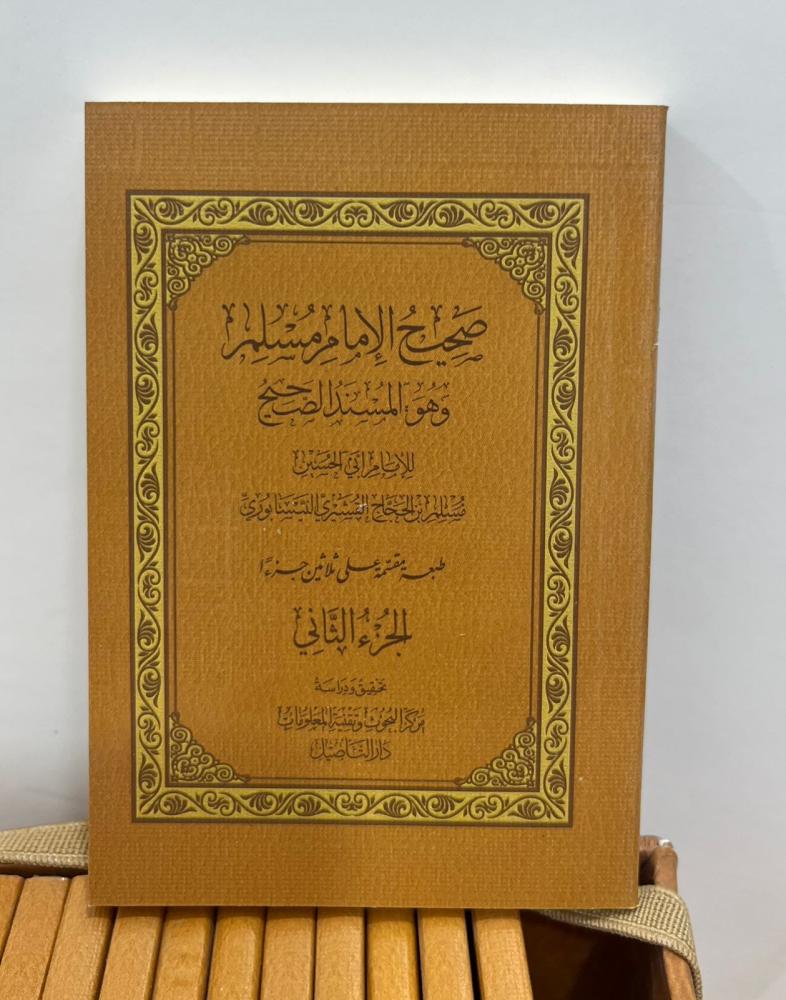 صَحِيحُ الإِمَامِ مُسْلِمٍ
وَهُوَ المُسْنَدُ الصَّحِيحُ
لِلإِمَامِ أَبِي الحُسَيْنِ
مُسْلِمِ بْنِ الحَجَّاجِ القُشَيْرِيِّ النَّيْسَابُورِيِّ
طبعة مقسّمة على ثلاثين جزءًا
الجُزْءُ الثَّانِي
تَحْقِيقُ وَدِرَاسَةُ
مَرْكَزِ البُحُوثِ وَتِقْنِيَةِ المَعْلُومَاتِ
دَارِ التَّأْصِيلِ